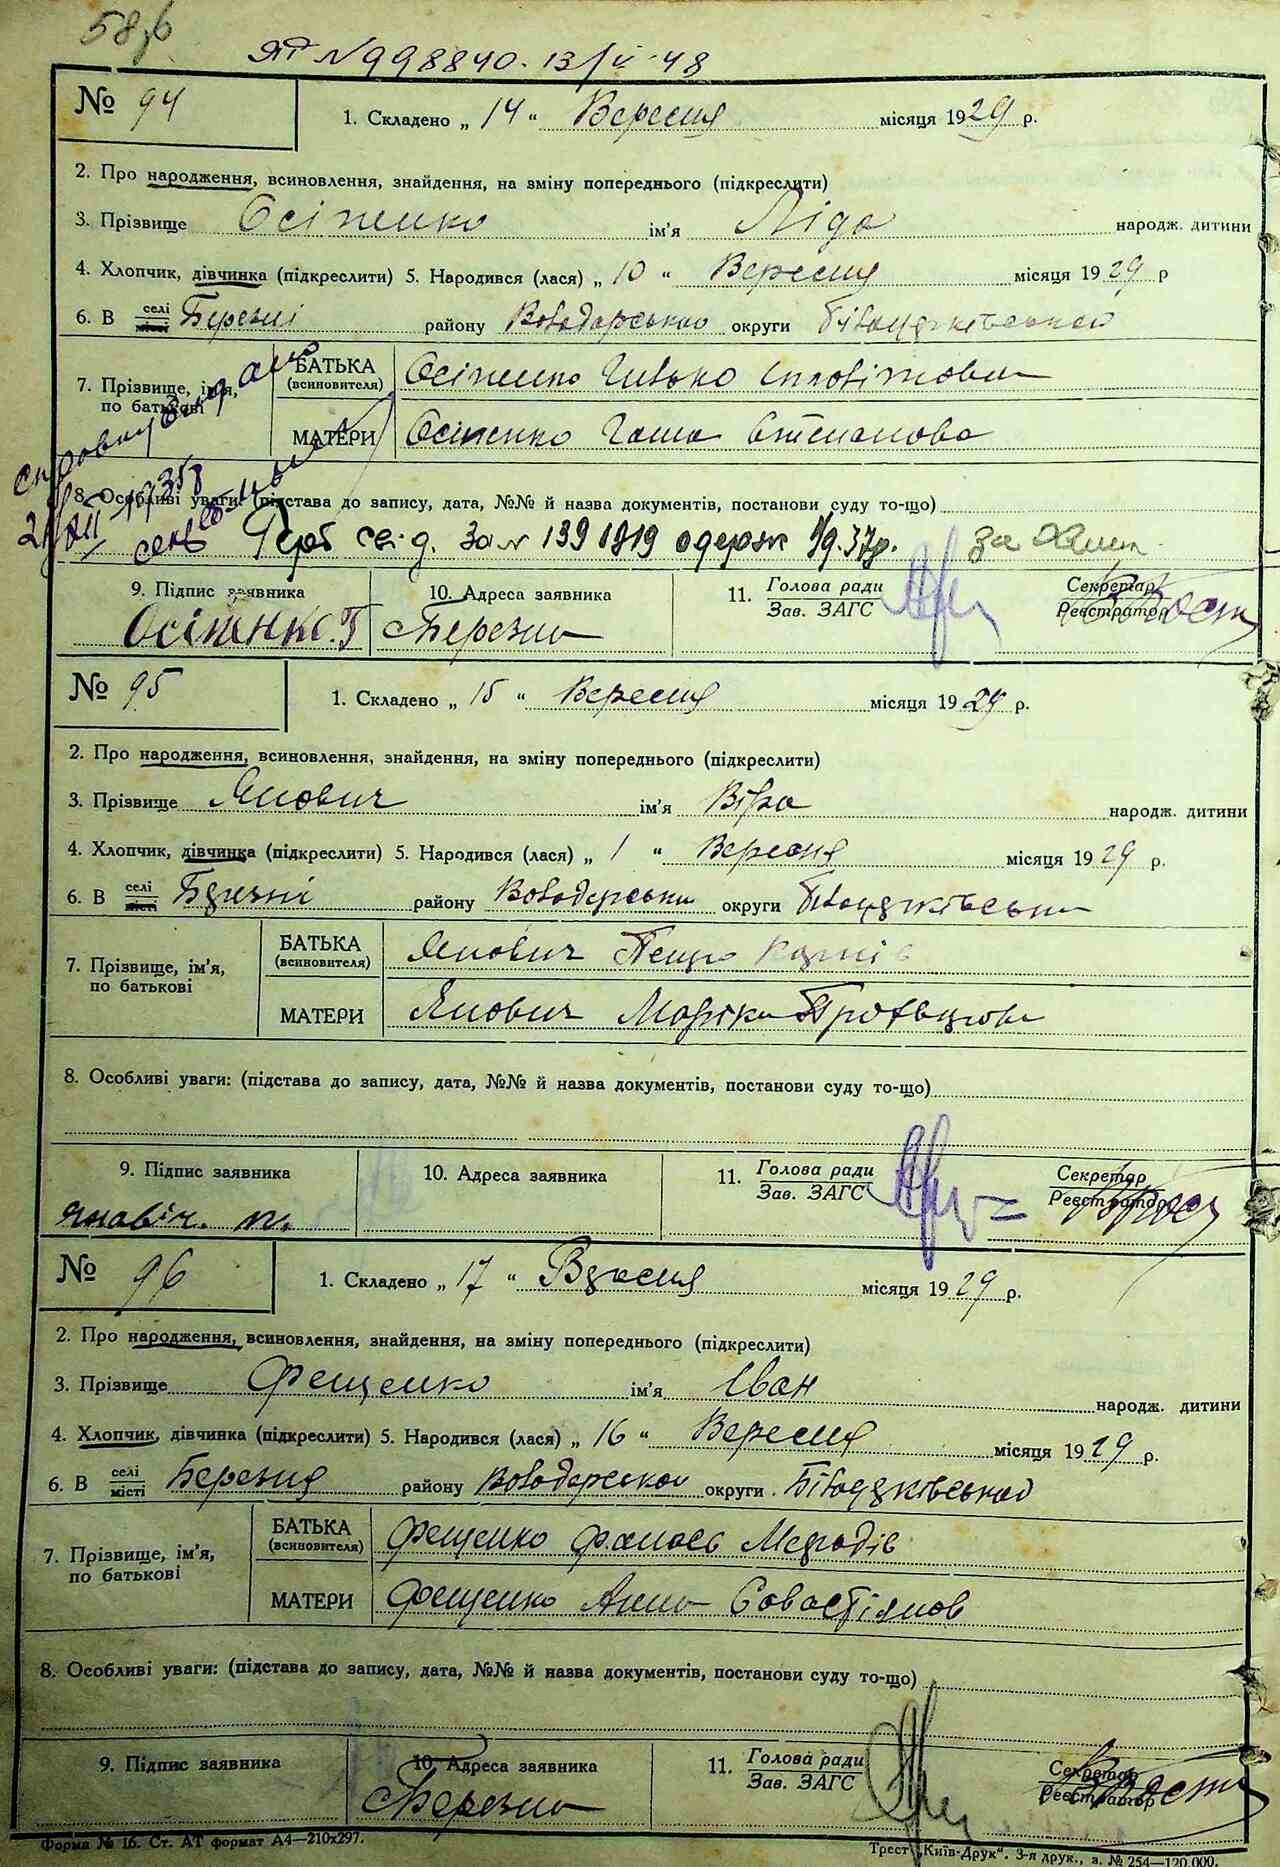 58
ЯР N 998840. 13/V-48
№ 94
1. Складено „ 14 “ Вересня місяця 1929 р.
2. Про народження, всиновлення, знайдення, на зміну попереднього (підкреслити)
3. Прізвище Осіпенко ім'я Ліда народж. дитини
4. Хлопчик, дівчинка (підкреслити) 5. Народився (лася) „ 10 “ Вересня місяця 1929 р
6. В селі місті Березні району Володарського округи Білоцерківської
7. Прізвище, ім'я, по батькові
БАТЬКА (всиновителя) Осіпенко
МАТЕРИ Осіпенко Ганна Степанова
8. Особливі уваги: (підстава до запису, дата, №№ й назва документів, постанови суду то-що)
Герб свід. за № 1391819 одерж 37р.
9. Підпис заявника
Осіпенко. Г
10. Адреса заявника
Березна
11. Голова ради Зав. ЗАГС
Секретар Реєстратор
№ 95
1. Складено „ 15 “ Вересня місяця 1929 р.
2. Про народження, всиновлення, знайдення, на зміну попереднього (підкреслити)
3. Прізвище Янович ім'я Віра народж. дитини
4. Хлопчик, дівчинка (підкреслити) 5. Народився (лася) „ 1 “ Вересня місяця 1929 р.
6. В селі місті Березні району Володарськ округи Білоцерківськ
7. Прізвище, ім'я, по батькові
БАТЬКА (всиновителя) Янович Петро
МАТЕРИ Янович Марійка
8. Особливі уваги: (підстава до запису, дата, №№ й назва документів, постанови суду то-що)
9. Підпис заявника
Яновіч. п.
10. Адреса заявника
11. Голова ради Зав. ЗАГС
Секретар Реєстратор
№ 96
1. Складено „ 17 “ Вересня місяця 1929 р.
2. Про народження, всиновлення, знайдення, на зміну попереднього (підкреслити)
3. Прізвище Фещенко ім'я Іван народж. дитини
4. Хлопчик, дівчинка (підкреслити) 5. Народився (лася) „ 16 “ Вересня місяця 1929 р.
6. В селі місті Березня району Володарського округи Білоцерківської
7. Прізвище, ім'я, по батькові
БАТЬКА (всиновителя) Фещенко Фанась Мефодів
МАТЕРИ Фещенко Анна Савастіянов
8. Особливі уваги: (підстава до запису, дата, №№ й назва документів, постанови суду то-що)
9. Підпис заявника
10. Адреса заявника
Березна
11. Голова ради Зав. ЗАГС
Секретар Реєстратор
Форма № 16. Ст. АТ формат А4—210x297.
Трест „Київ-Друк“. 3-я друк., з. № 254—120.000.